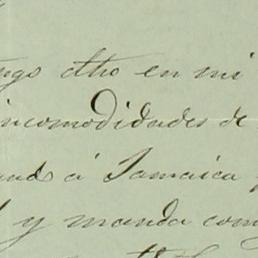 otro en mi
incomodidades de
á Jamaica
y manda com